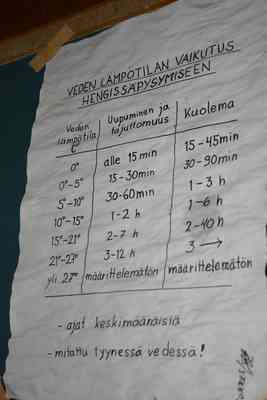 VEDEN LÄMPÖTILAN VAIKUTUS
HENGISSÄPYSYMISEEN
Veden lämpötila C° Uupuminen ja tajuttomuus Kuolema
0° alle 15 min 15-45min
0°-5° 15-30min 30-90min
5°-10° 30-60min 1-3 h
10°-15° 1-2 h 1-6 h
15°-21° 2-7 h 2-40 h
21°-27° 3-12 h 3 →
yli 27° määrittelemätön määrittelemätön
- ajat keskimääräisiä
- mitattu tyynessä vedessä!